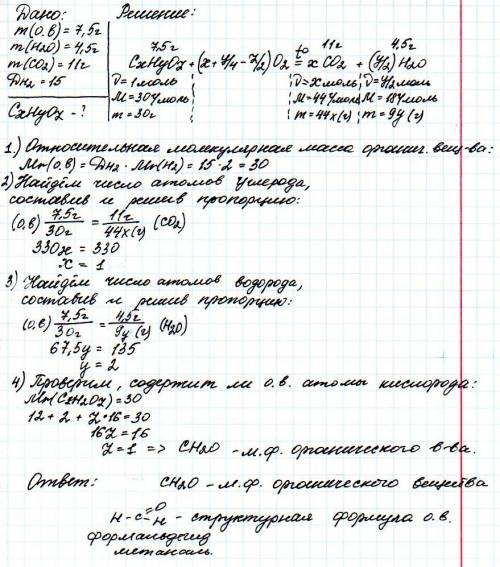 Дано: Решение:
m(о.в) = 7,5г
m(H2O) = 4,5г
m(CO2) = 11г
DH2 = 15
CxHyOz - ?
7,5г 11г 4,5г
CxHyOz + (x + y/4 - z/2) O2 =tº x CO2 + (y/2) H2O
ν = 1моль ν = x моль ν = y/2 моль
M = 30г/моль M = 44г/моль M = 18г/моль
m = 30г m = 44x (г) m = 9y (г)
1) Относительная молекулярная масса органич. вещ-ва:
Mr(о.в) = DH2 · Mr(H2) = 15 · 2 = 30
2) Найдём число атомов углерода,
составив и решив пропорцию:
(о.в) 7,5г/30г = 11г/44x(г) (CO2)
330x = 330
x = 1
3) Найдём число атомов водорода,
составив и решив пропорцию:
(о.в) 7,5г/30г = 4,5г/9y(г) (H2O)
67,5y = 135
y = 2
4) Проверим, содержит ли о.в. атомы кислорода:
Mr(CxH2Oz) = 30
12 + 2 + z·16 = 30
16z = 16
z = 1 => CH2O - м.ф. органического в-ва.
Ответ: CH2O - м.ф. органического вещества
H - C =O H - структурная формула о.в.
формальдегид
метаналь.